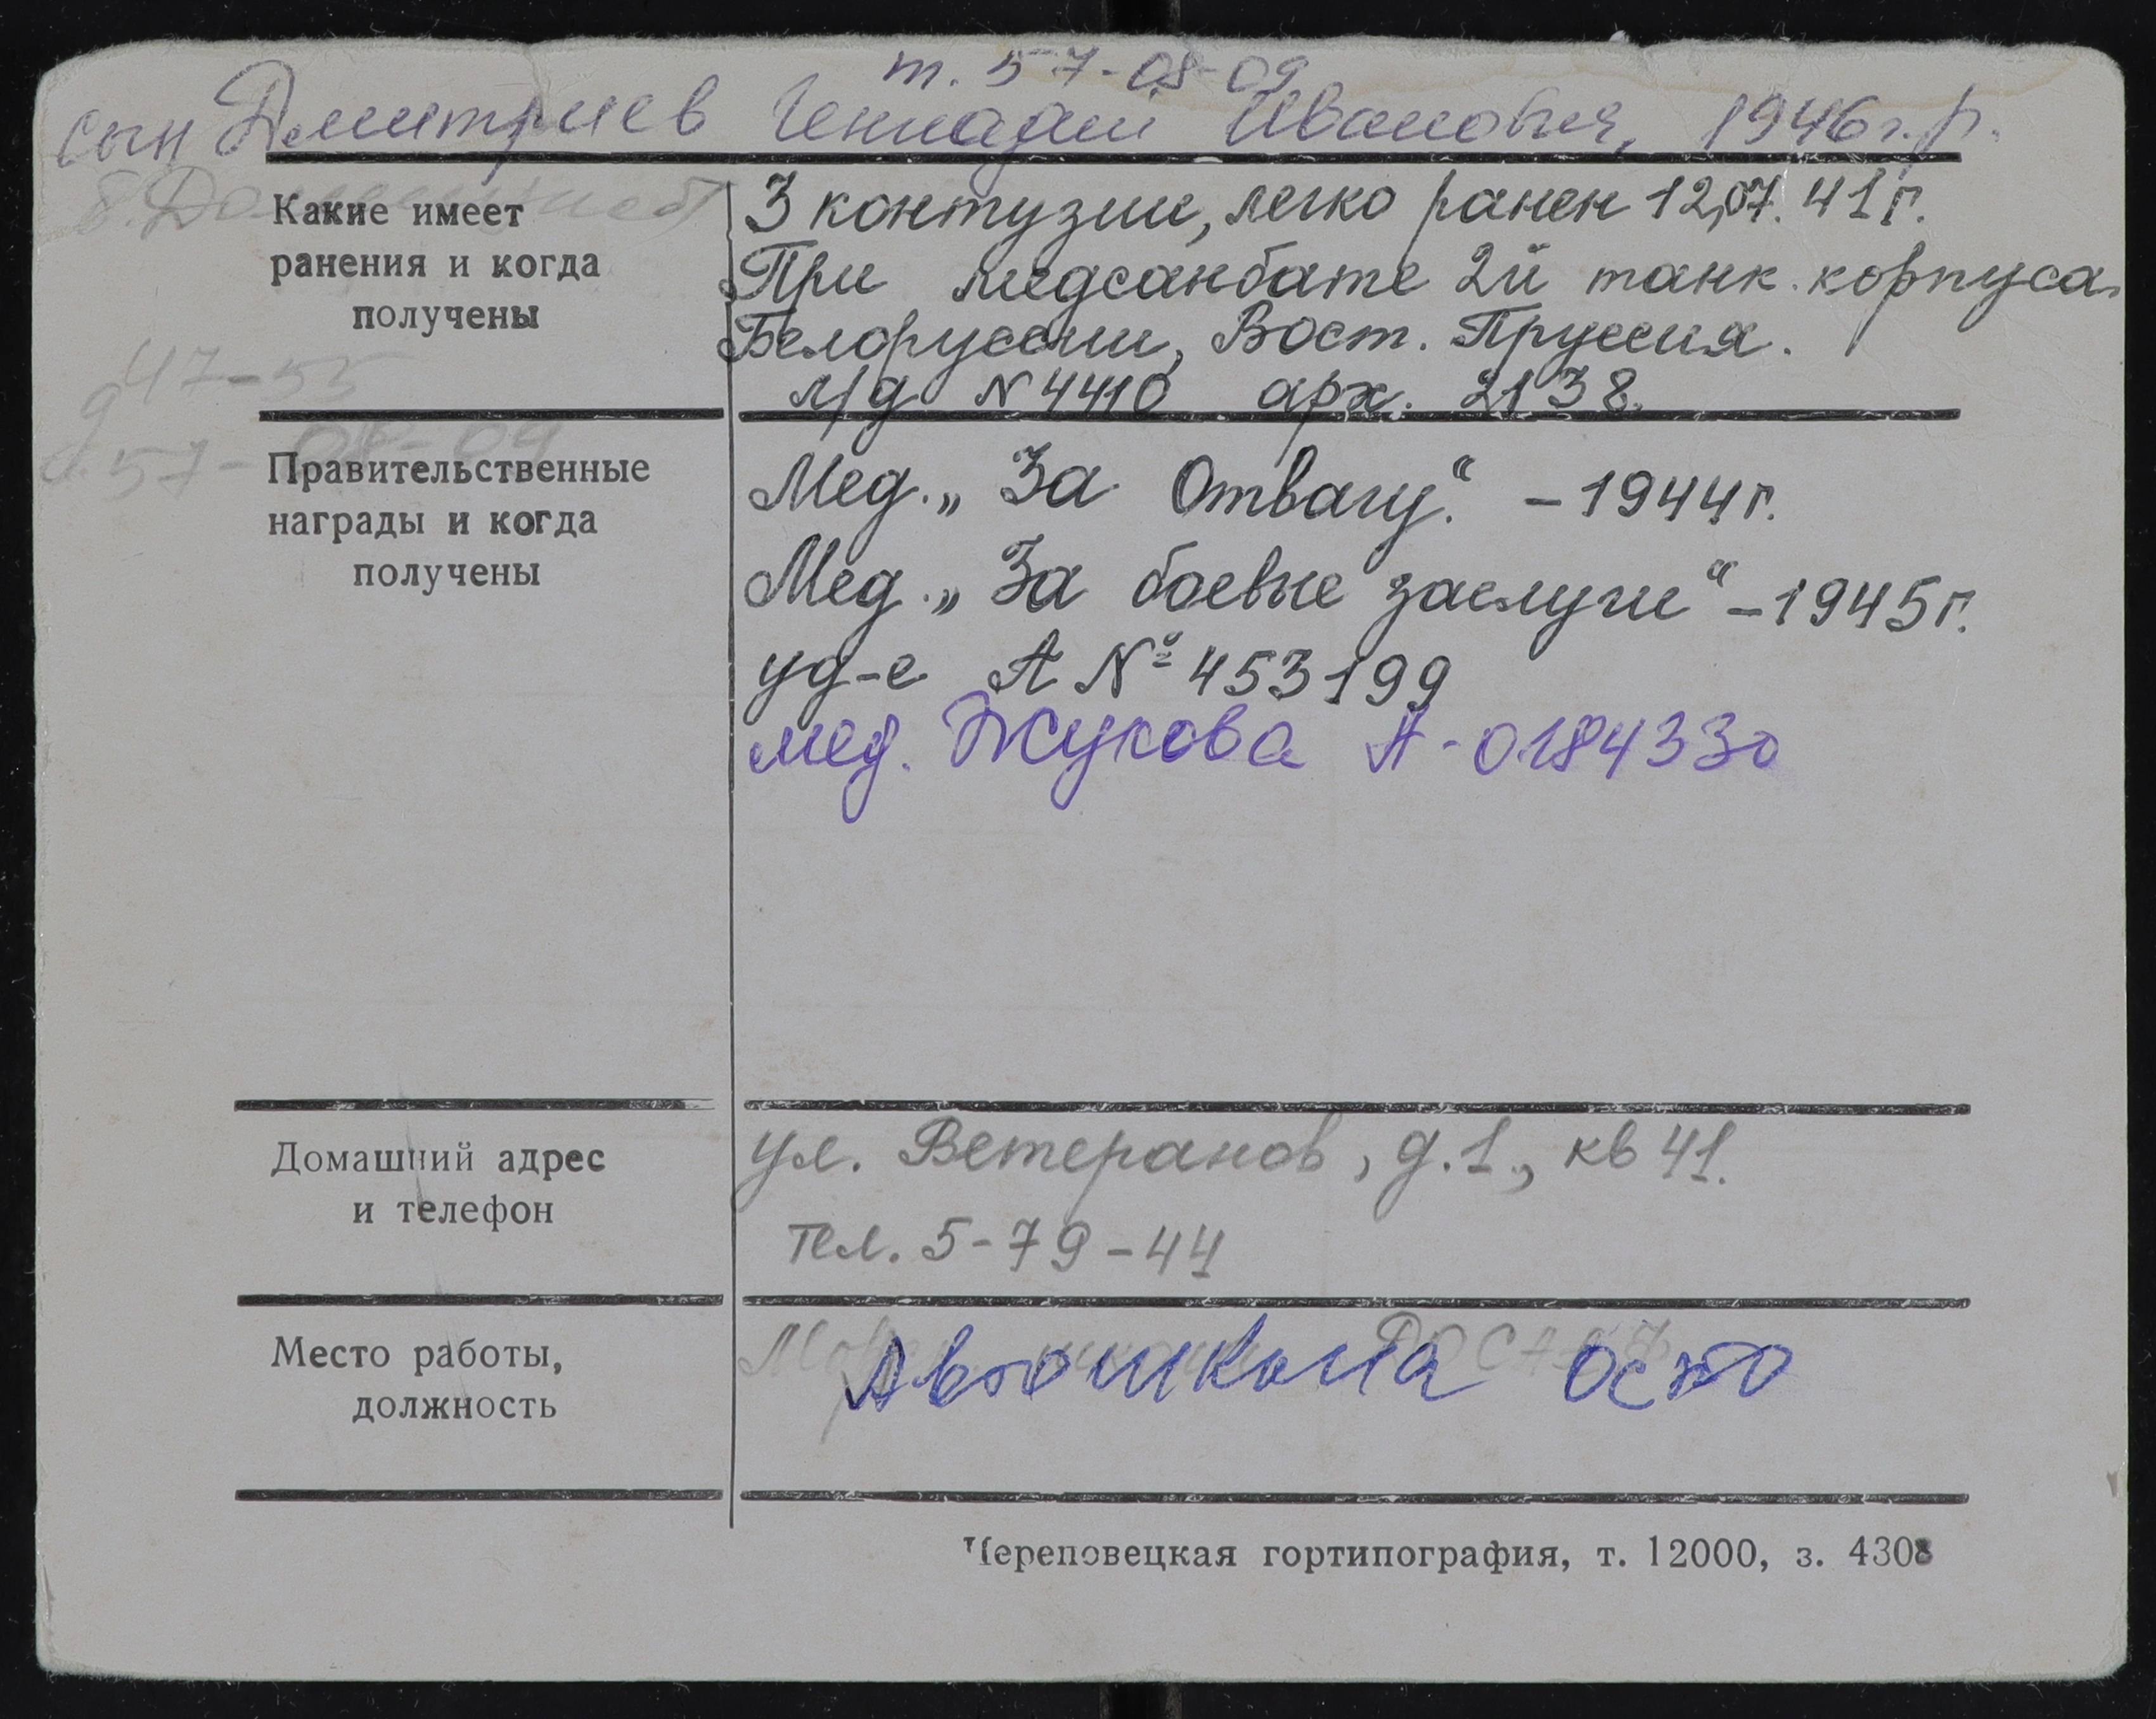 т. 57-08-09
сын Дмитриев Геннадий Иванович, 1946 г.р.
Какие имеет
ранения и когда
получены
3 контузии, легко ранен 12.07.41г.
При медсанбате 2й танк. корпуса.
Белоруссии, Вост. Пруссия.
м/д N 4410 арх. 2138.
47-55
57-08-09
Правительственные
награды и когда
получены
Мед. „За Отвагу.“ – 1944г.
Мед. „За боевые заслуги“ – 1945г.
уд-е А № 453199
мед. Жукова А-0184330
Домашний адрес
и телефон
ул. Ветеранов, д.1., кв 41.
тел. 5-79-44
Место работы,
должность
Автошкола осто
Череповецкая гортипография, т. 12000, з. 4308